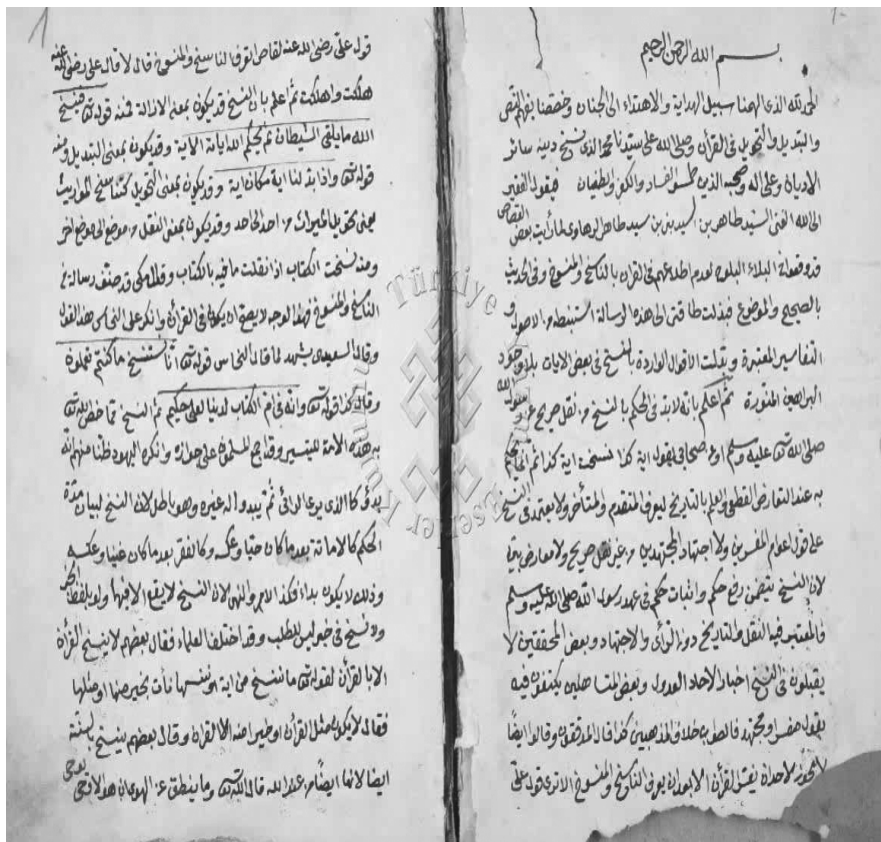 بسم الله الرحمن الرحيم
الحمد لله الذى الهمنا سبيل الهداية والاهتداء الى الجنان وخصنا بفهم النقص
والتبديل والتحويل فى القرأن وصلى الله على سيدنا محمد الذى نسخ دينه سائر
الاديان وعلى اله وصحبه الذين طمس الفساد والكفر والطغيان فيقول الفقير
الى الله الغنى السيد طاهر بن السيد بن سيد طاهر الرهاوى لما رأيت بعض القصاص
قد وقعوا فى البلاء البلوه لعدم اطلاعهم فى القرأن بالناسخ والمنسوخ وفى الحديث
بالصحيح والموضوع فبذلت طاقتى الى هذه الرسالة المستنبطة من الاصول و
التفاسير المعتبرة وبدلت الاقوال الواردة بالنسخ فى بعض الايات بلا وجود
البراهين المنورة ثم اعلم بانه لا بد فى الحكم بالنسخ من نقل صريح عن رسول الله
صلى الله تعالى عليه وسلم او عن صحابى يقول اية كذا نسخت اية كذا ثم انما يحكم
به عند التعارض القطعى والعلم بالتاريخ ليعرف المتقدم والمتأخر ولا يعتمد فى النسخ
على قول عوام المفسرين ولا اجتهاد المجتهدين من غير نقل صريح ولا معارض بين
لان النسخ يتضمن رفع حكم واثبات حكم فى عهد رسول الله صلى الله عليه وسلم
فالمعتبر فيه النقل والتاريخ دون الرأى والاجتهاد وبعض المحققين لا
يقبلون فى النسخ اخبار الاحاد العدول وبعض المتساهلين يكتفون فيه
بقول مفسر ومجتهد فالصواب خلاف المذهبين كذا قال المدققون وقالوا ايضا
لا يجوز لاحد ان يفسر القرأن الا بعد ان يعرف الناسخ والمنسوخ الا ترى قول على
قول على رضى الله عنه لقاص اتعرف الناسخ والمنسوخ قال لا قال على رضى الله عنه
هلكت واهلكت ثم اعلم بان النسخ قد يكون بمعنى الازالة فمنه قوله تعالى فينسخ
الله ما يلقى الشيطان ثم يحكم الله اياته الاية وقد يكون بمعنى التبديل ومنه
قوله تعالى واذا بدلنا اية مكان اية وقد يكون بمعنى التحويل كتناسخ المواريث
يعنى تحويل الميراث من احد الى احد وقد يكون بمعنى النقل من موضع الى موضع اخر
ومنه نسخت الكتاب اذا نقلت ما فيه بالكتاب وقال مكى قد صنف رسالة فى
الناسخ والمنسوخ فهذا الوجه لا يصح ان يكون فى القرأن وانكر على النحاس هذا القول
وقال السعيدى يشهد لما قال النحاس قوله تعالى انا نستنسخ ما كنتم تعملون
وقال كذا قوله تعالى وانه فى ام الكتاب لدينا لعلى حكيم ثم النسخ مما خص الله تعالى
به هذه الامة للتيسير وقد اجمع المسلمون على جوازه وانكره اليهود ظنا منهم انه
بدؤ كالذى يرى الرأى ثم يبدو له غيره وهو باطل لان النسخ لبيان مدة
الحكم كالاماتة بعد ما كان حيا وعكسه وكالفقر بعد ما كان غنيا وعكسه
وذلك لا يكون بداء فكذا الامر والنهى لان النسخ لا يقع الا فيها ولو بلفظ الخبر
ولا نسخ فى خبر ليس للطلب وقد اختلف العلماء فقال بعضهم لا ينسخ القرأن
الا بالقرأن لقوله تعالى ما ننسخ من اية او ننسها نأت بخير منها او مثلها
فقال لا يكون مثل القرأن او خيرا منه الا القرأن وقال بعضهم ينسخ بالسنة
ايضا لانها ايضا من عند الله قال الله تعالى وما ينطق عن الهوى ان هو الا وحى يوحى
Türkiye